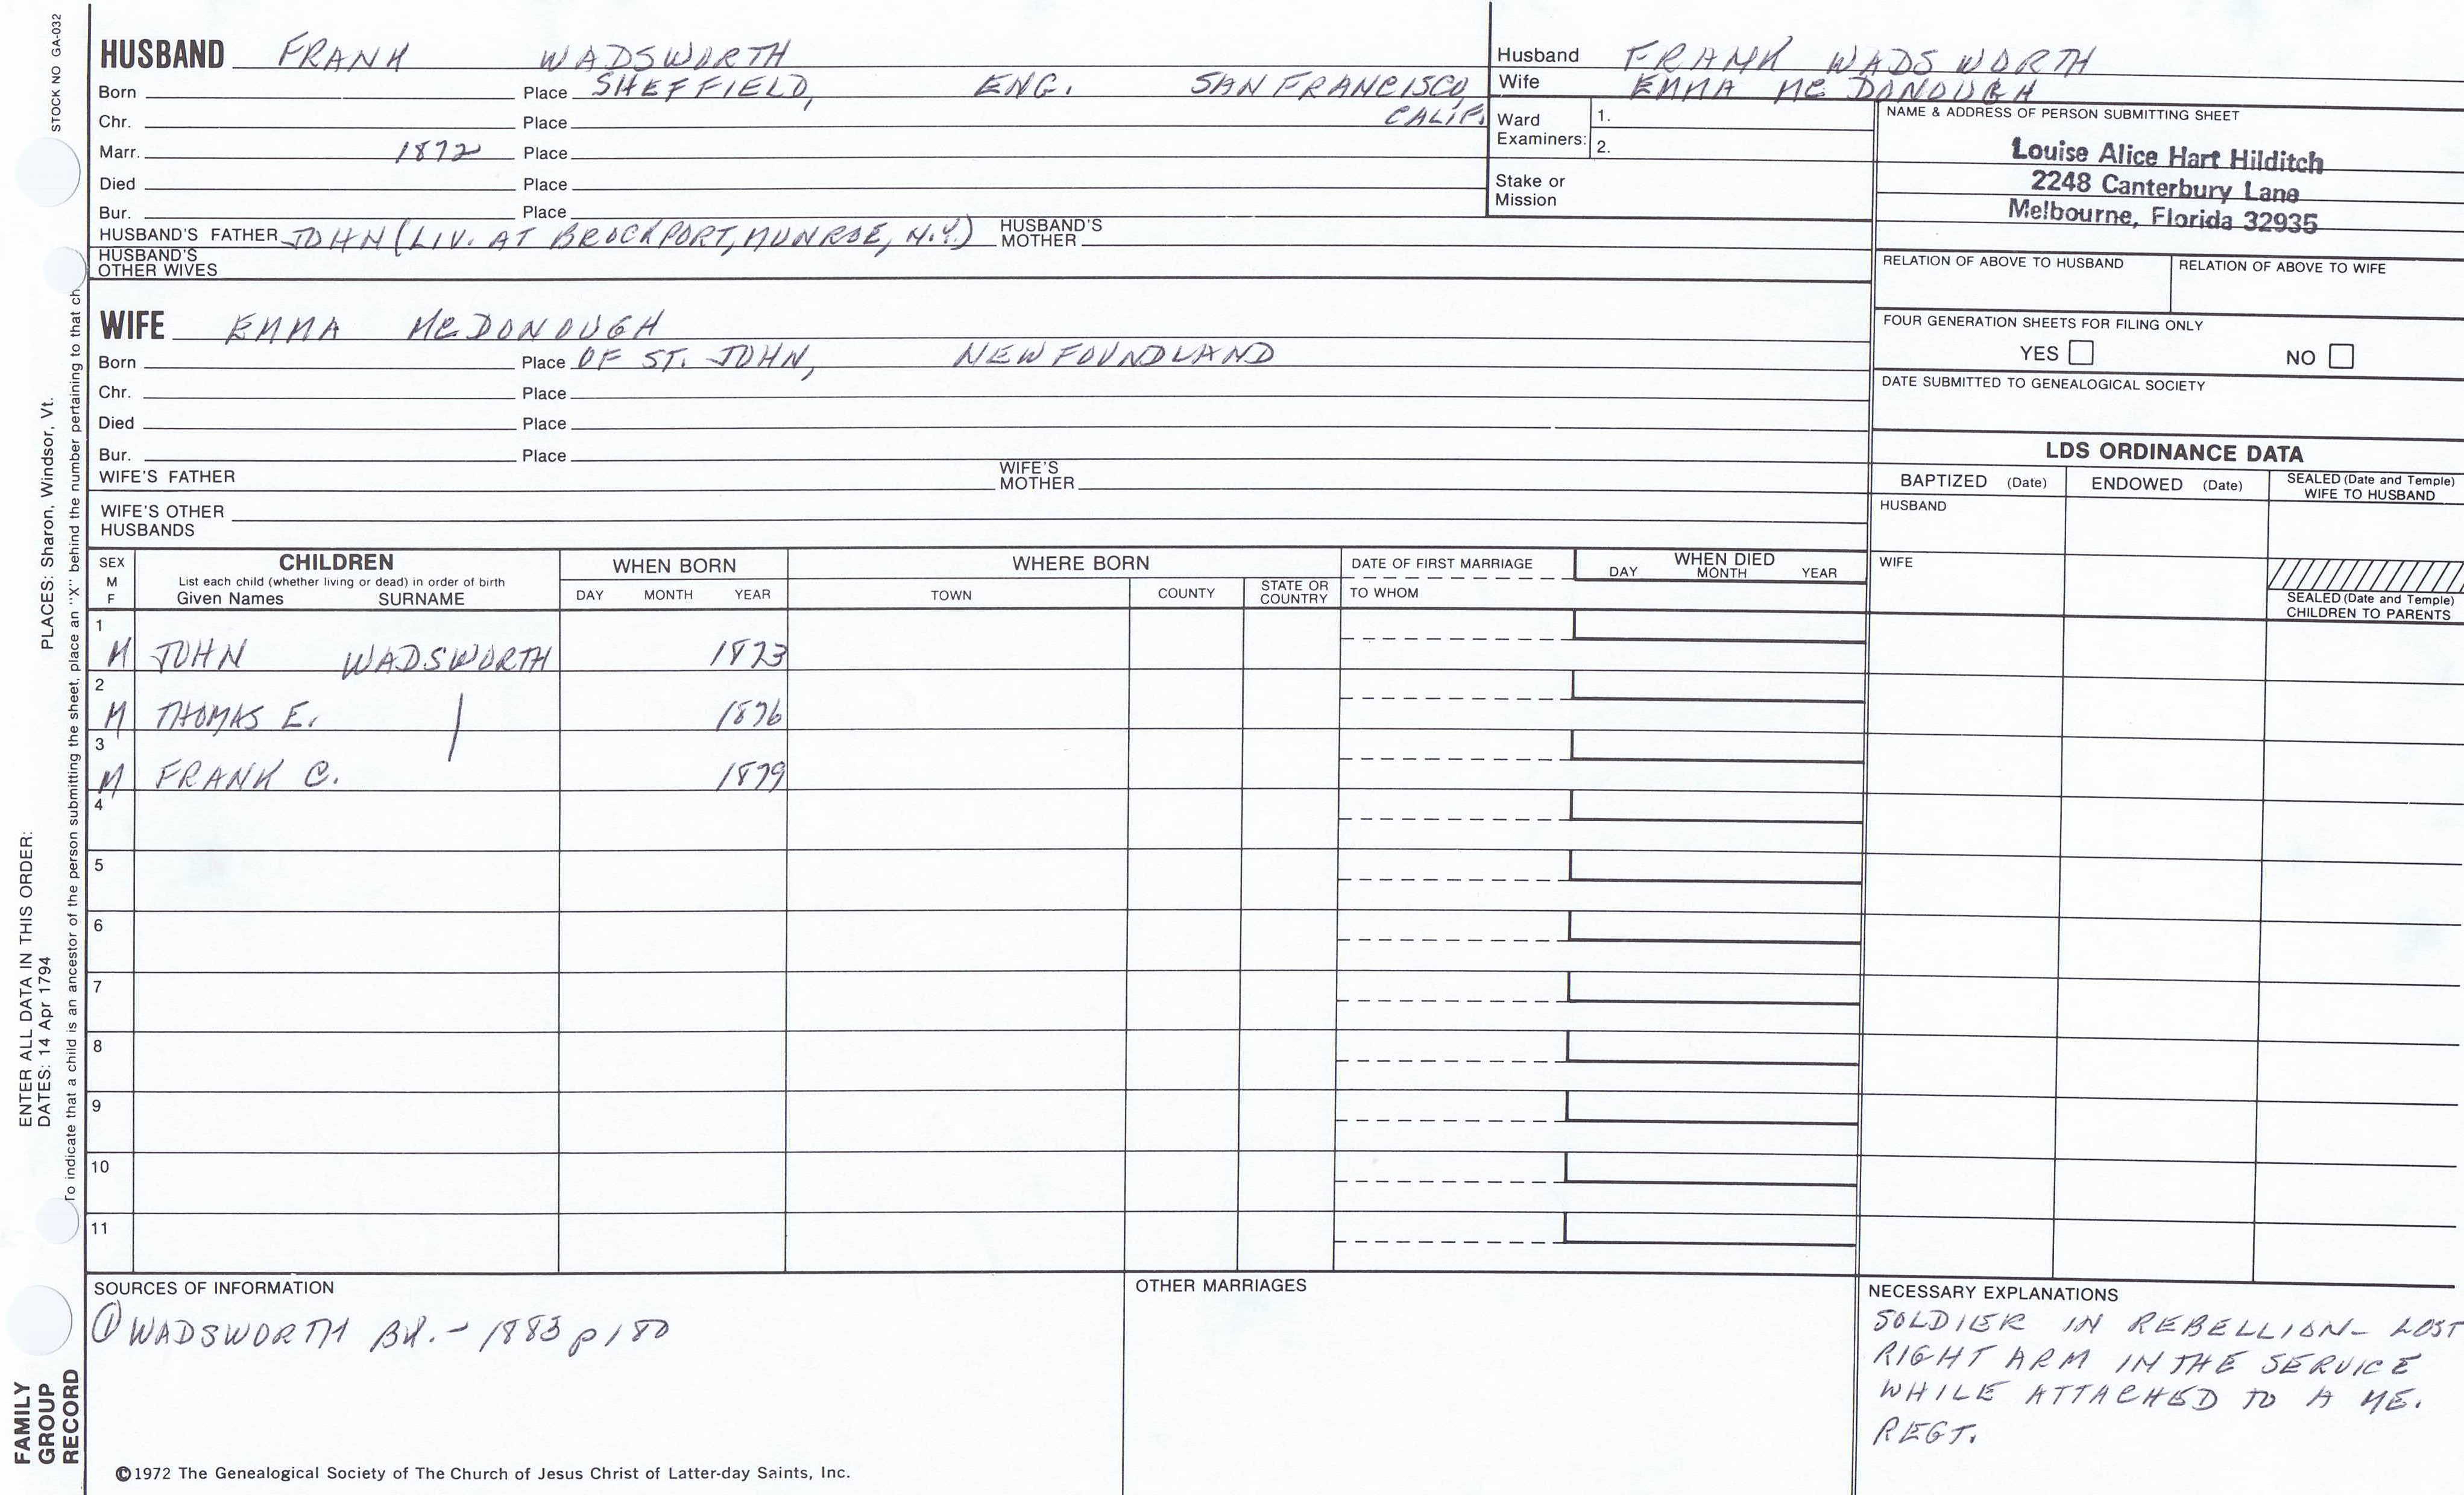 STOCK NO GA-032
HUSBAND FRANK WADSWORTH
Born Place SHEFFIELD, ENG. SAN FRANCISCO,
Chr. Place CALIF.
Marr. 1872 Place
Died Place
Bur. Place
HUSBAND'S FATHER JOHN (LIV. AT BROCKPORT, MUNROE, N.Y.) HUSBAND'S MOTHER
HUSBAND'S OTHER WIVES
WIFE EMMA McDONOUGH
Born Place OF ST. JOHN, NEWFOUNDLAND
Chr. Place
Died Place
Bur. Place
WIFE'S FATHER WIFE'S MOTHER
WIFE'S OTHER HUSBANDS
Husband FRANK WADSWORTH
Wife EMMA McDONOUGH
Ward Examiners: 1.
2.
Stake or Mission
NAME & ADDRESS OF PERSON SUBMITTING SHEET
Louise Alice Hart Hilditch
2248 Canterbury Lane
Melbourne, Florida 32935
RELATION OF ABOVE TO HUSBAND RELATION OF ABOVE TO WIFE
FOUR GENERATION SHEETS FOR FILING ONLY
YES NO
DATE SUBMITTED TO GENEALOGICAL SOCIETY
LDS ORDINANCE DATA
BAPTIZED (Date) ENDOWED (Date) SEALED (Date and Temple) WIFE TO HUSBAND
HUSBAND
WIFE
SEALED (Date and Temple)
CHILDREN TO PARENTS
SEX M F
CHILDREN
List each child (whether living or dead) in order of birth
Given Names SURNAME
WHEN BORN
DAY MONTH YEAR
WHERE BORN
TOWN COUNTY STATE OR COUNTRY
DATE OF FIRST MARRIAGE
TO WHOM
WHEN DIED
DAY MONTH YEAR
1 M JOHN WADSWORTH 1873
2 M THOMAS E. 1876
3 M FRANK C. 1879
4
5
6
7
8
9
10
11
SOURCES OF INFORMATION
① WADSWORTH BK. - 1883 p 180
OTHER MARRIAGES
NECESSARY EXPLANATIONS
SOLDIER IN REBELLION - LOST
RIGHT ARM IN THE SERVICE
WHILE ATTACHED TO A ME.
REGT.
©1972 The Genealogical Society of The Church of Jesus Christ of Latter-day Saints, Inc.
FAMILY
GROUP
RECORD
ENTER ALL DATA IN THIS ORDER:
DATES: 14 Apr 1794 PLACES: Sharon, Windsor, Vt.
To indicate that a child is an ancestor of the person submitting the sheet, place an "X" behind the number pertaining to that ch